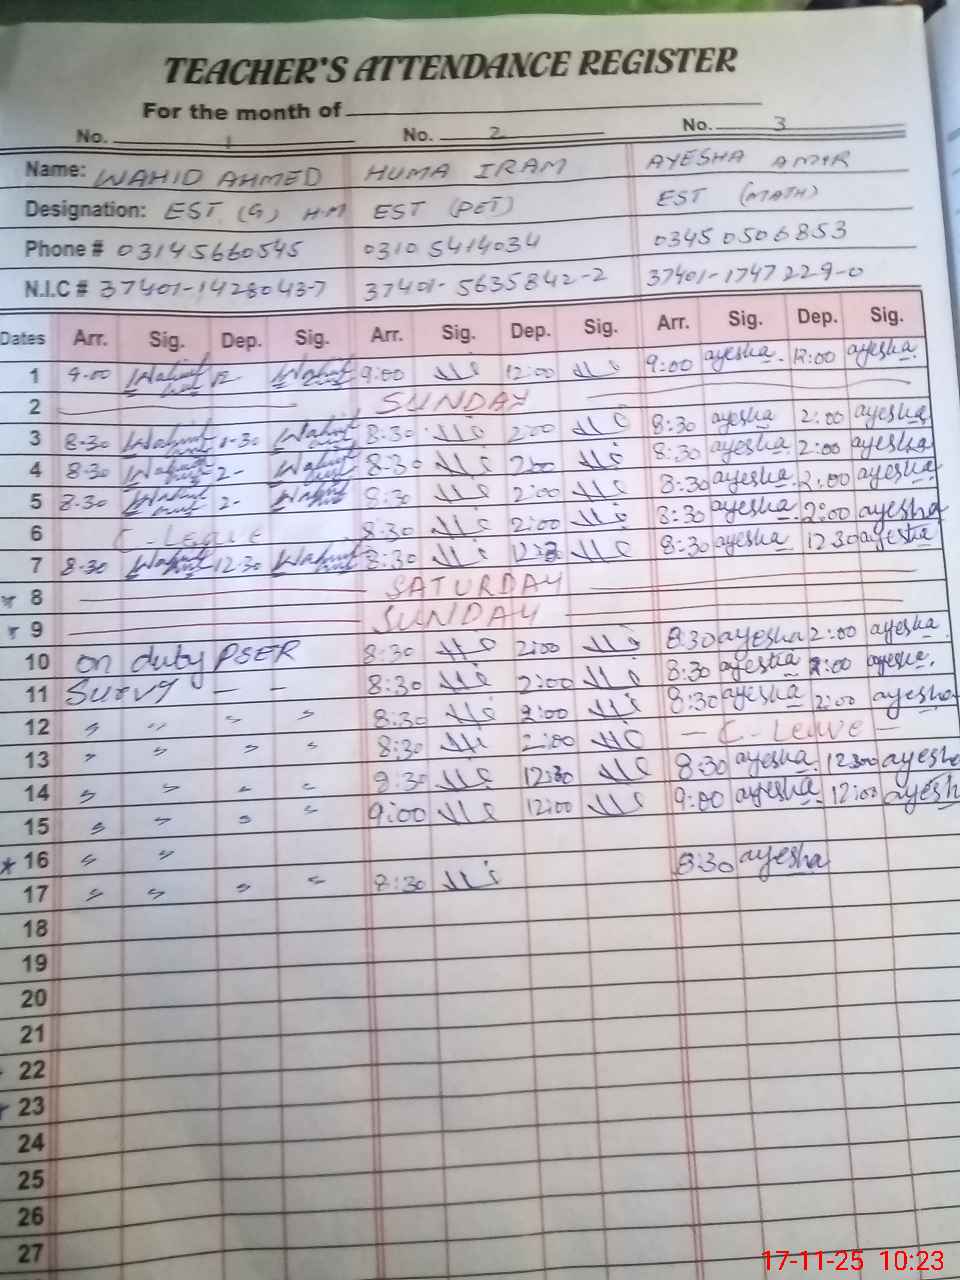 TEACHER'S ATTENDANCE REGISTER
For the month of
No. 1 No. 2 No. 3
Name: WAHID AHMED HUMA IRAM AYESHA AMIR
Designation: EST (G) HM EST (PET) EST (MATH)
Phone # 03145660545 0310 5414034 0345 0506853
N.I.C # 37401-1428043-7 37401-5635842-2 37401-1747229-0
Dates Arr. Sig. Dep. Sig. Arr. Sig. Dep. Sig. Arr. Sig. Dep. Sig.
1 9-00 Wahid 12 Wahid 9:00 12:00 9:00 ayesha. 12:00 ayesha.
2 SUNDAY
3 8-30 Wahid Wahid 8:30 2:00 8:30 ayesha 2:00 ayesha
4 8-30 Wahid 2- Wahid 8:30 2:00 8:30 ayesha. 2:00 ayesha
5 8-30 Wahid 2- Wahid 8:30 2:00 8:30 ayesha. 2:00 ayesha
6 C-Leave 8:30 2:00 8:30 ayesha. 2:00 ayesha
7 8-30 Wahid 12-30 Wahid 8:30 8:30 ayesha 1230 ayesha
8 SATURDAY
9 SUNDAY
10 on duty PSER 8:30 2:00 8:30 ayesha 2:00 ayesha
11 Survy - - 8:30 2:00 8:30 ayesha 2:00 ayesha.
12 " " " " 8:30 2:00 8:30 ayesha 2:00 ayesha
13 " " " " 8:30 2:00 - C-Leave -
14 " " " " 8:30 12:30 8:30 ayesha ayesha
15 " " " " 9:00 12:00 9:00 ayesha. 12:00 ayesh
16 " "
17 " " " " 8:30 8:30 ayesha
18
19
20
21
22
23
24
25
26
27
17-11-25 10:23